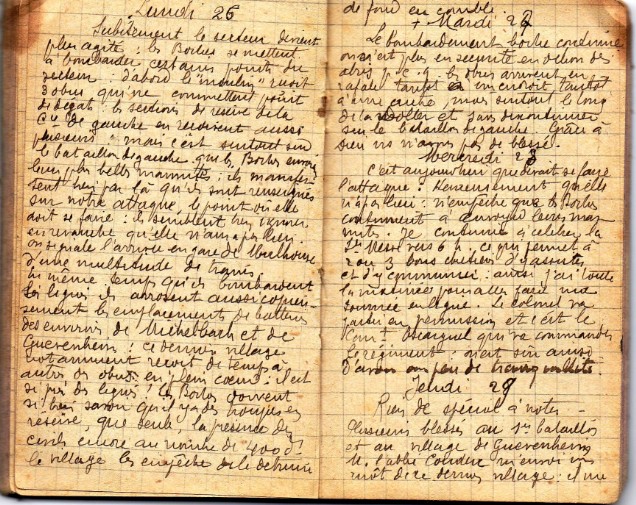 Lundi 26
Subitement le secteur devient
plus agité : les Boches se mettent
à bombarder certains points du
secteur : d'abord le "moulin" reçoit
3 obus qui ne commettent point
de dégât ; les sections de réserve de la
Cie de gauche en reçoivent aussi
plusieurs mais c'est surtout sur
le bataillon de gauche que les Boches envoient
leurs plus belles marmites ; ils
bien par là qu'ils sont renseignés
sur notre attaque, le point où elle
doit se faire : ils semblent bien ignorer
en revanche qu'elle n'aura pas lieu.
on signale l'arrivée en gare de Mulhouse
d'une multitude de trains.
En même temps qu'ils bombardent
les lignes ils arrosent aussi copieu-
sement les emplacements de batteries
des environs de Michelbach et de
Guevenheim : ce dernier village
notamment reçoit de temps à
autres des obus en plein coeur : il est
si près des lignes : les Boches doivent
si bien savoir qu'il y a des troupes en
réserve, que seule, la présence de
civils encore au nombre de 400 ds
le village les empêche de le détruire
de fond en comble.
+ Mardi 27
Le bombardement boche continue
on n'est plus en sécurité en dehors des
abris p.c.q. les obus arrivent en
rafale tantôt à un endroit tantôt
à un autre, mais surtout le long
de la Doller et sans discontinuer
sur le bataillon de gauche. Grâce à
Dieu ns n'avons pas de blessé.
Mercredi 28
C'est aujourd'hui que devait se faire
l'attaque. Heureusement qu'elle
n'a pas lieu : n'empêche que les Boches
continuent à envoyer leurs mar
mites. Je continue à célébrer la
Ste Messe vers 6 h. ce qui permet à
2 ou 3 bons chrétiens d'y assister
et d'y communier : aussi j'ai toute
la matinée pour aller faire ma
tournée en ligne. Le colonel va
partir en permission et c'est le
Com. qui va commander
le régiment : on est sûr ainsi
D'avoir un peu de tranquillité
Jeudi 29
Rien de spécial à noter -
Plusieurs blessés au 1er bataillon
et au village de Guevenheim
M. l'abbé m'envoie un
mot de ce dernier village : il me